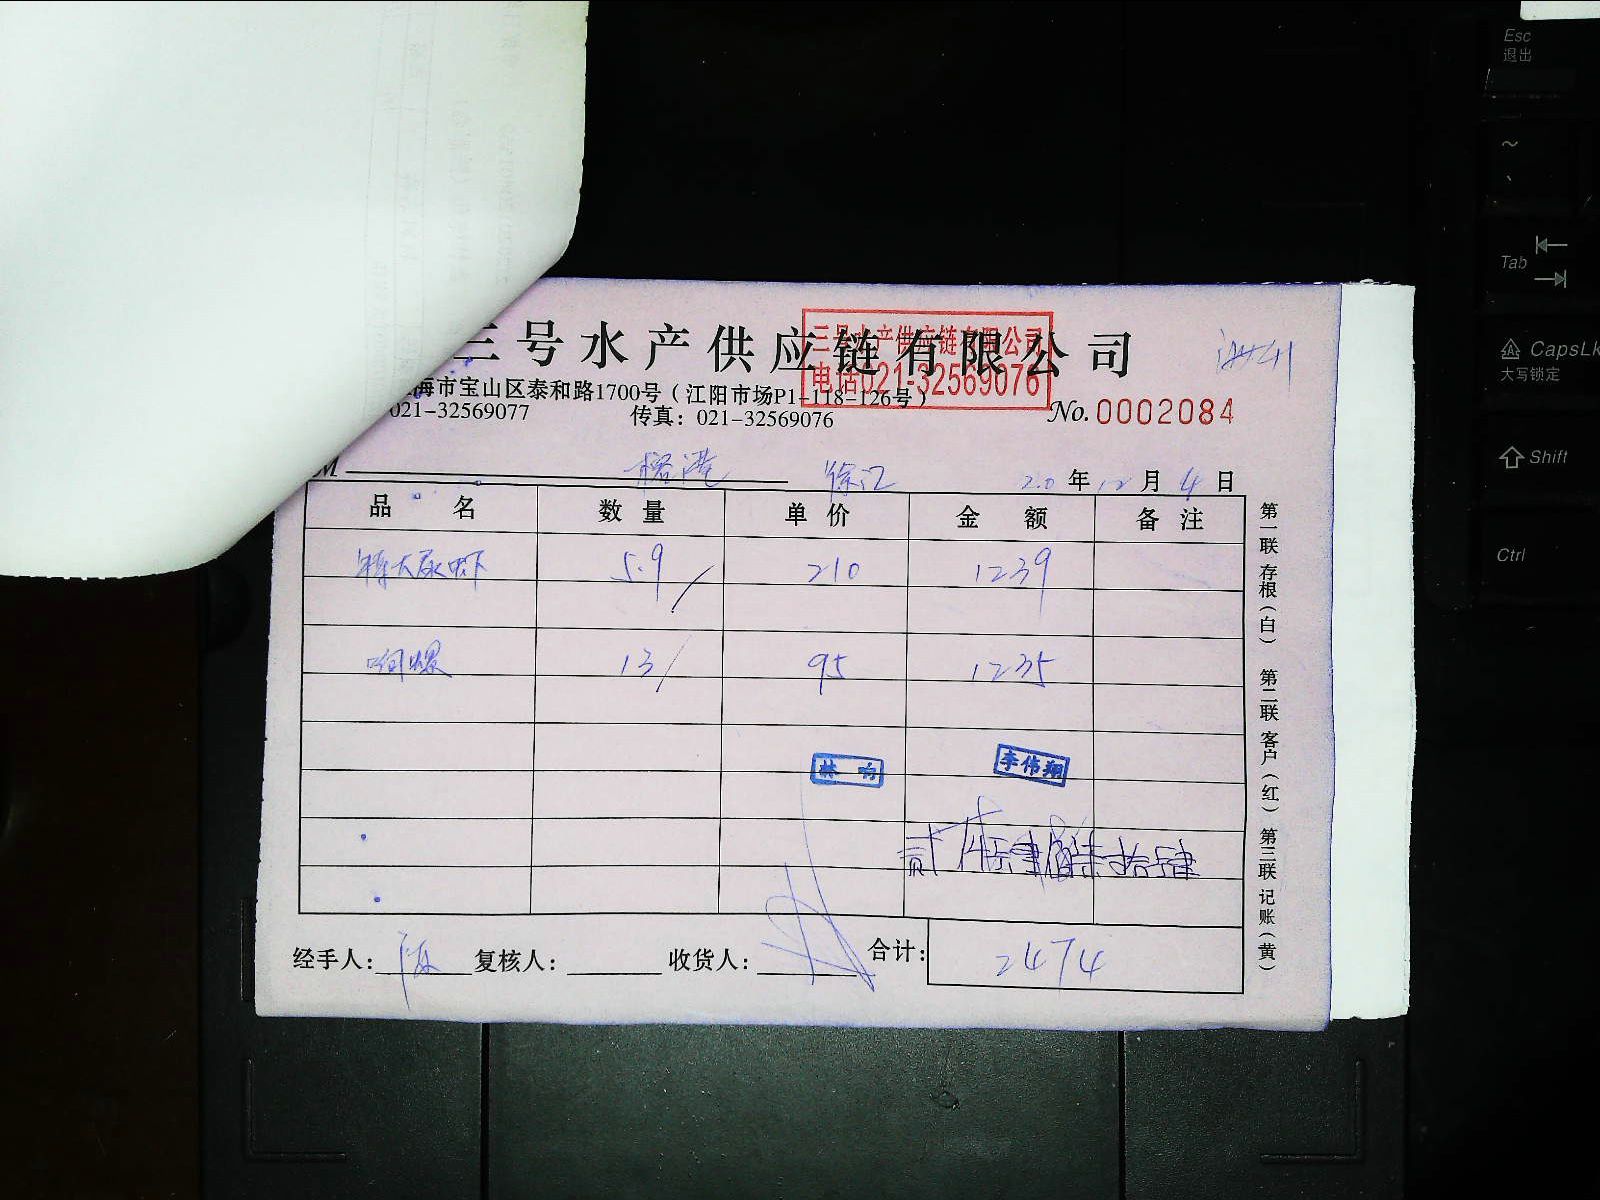 三号水产供应链有限公司
三号水产供应链有限公司
电话021-32569076
海市宝山区泰和路1700号(江阳市场P1-118-126号)
021-32569077 传真: 021-32569076
No. 0002084
M 榕港 徐汇 20年12月4日
品名 数量 单价 金额 备注
特大尿虾 5.9 210 1239
响螺 13 95 1235
林响 李伟翔
贰仟肆佰柒拾肆
经手人: 复核人: 收货人: 合计: 2474
第一联 存根(白) 第二联 客户(红) 第三联 记账(黄)
Esc
退出
~
Tab
CapsLk
大写锁定
Shift
Ctrl